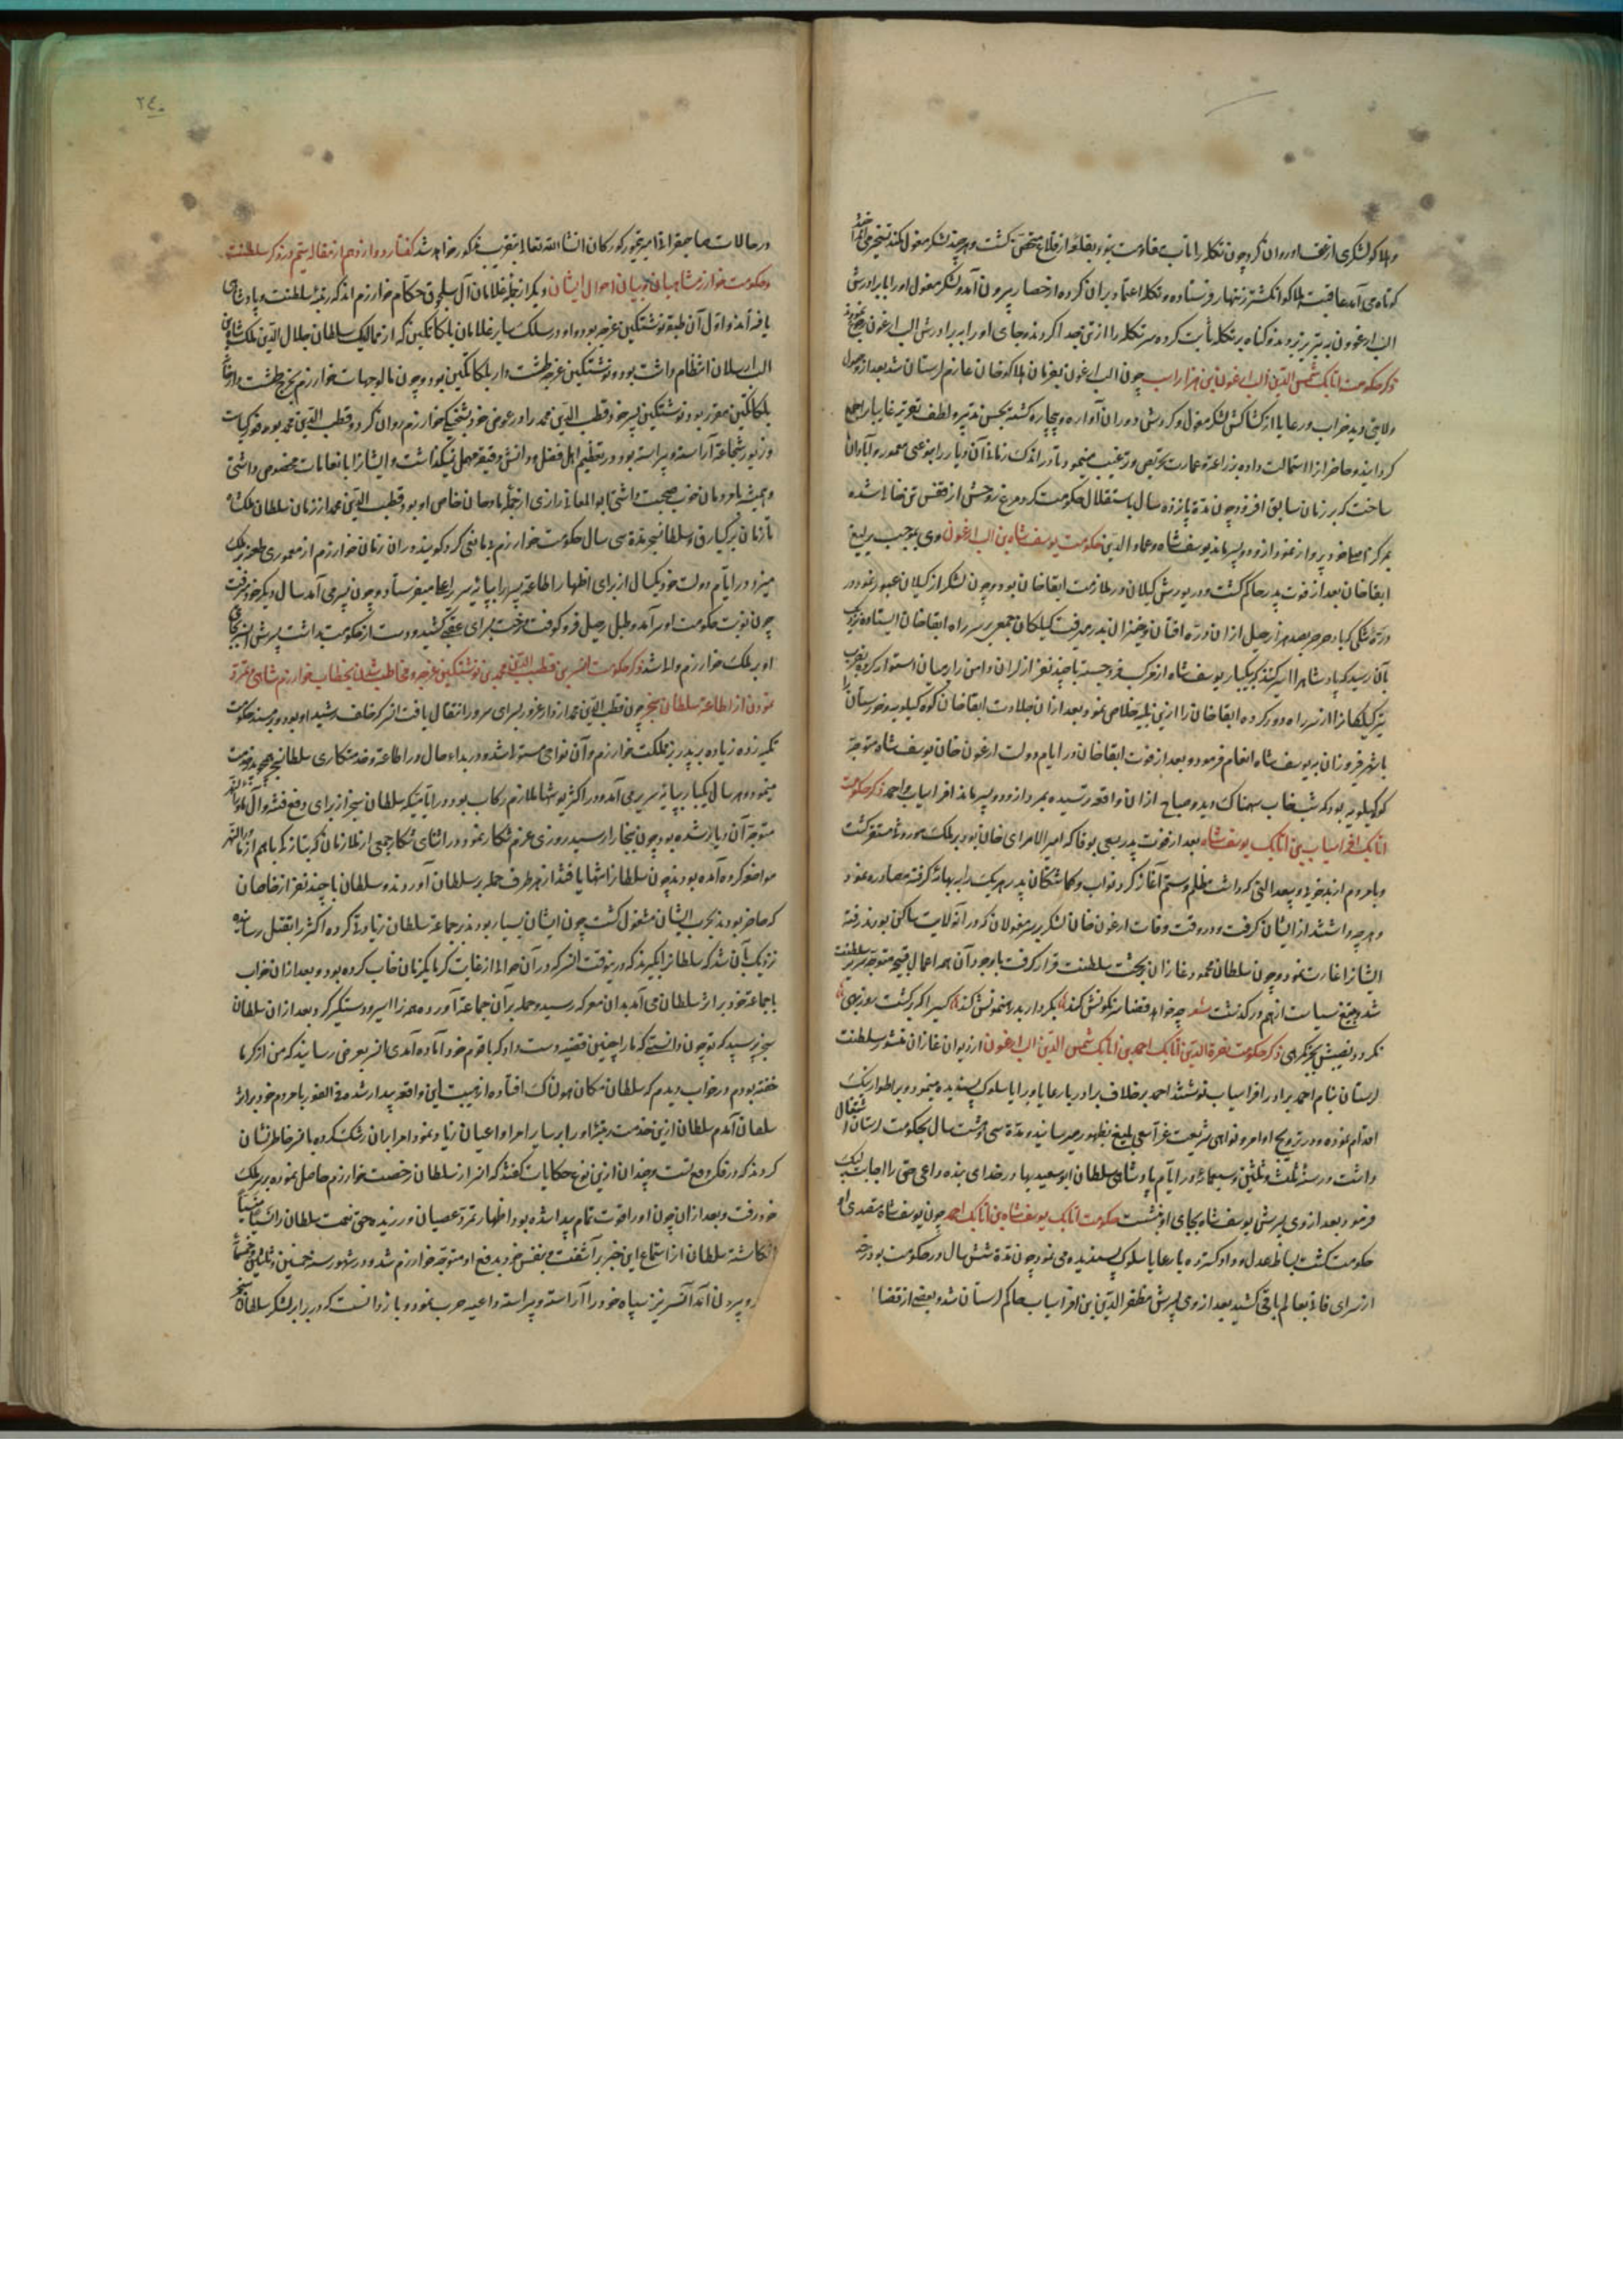 و هلاکو لشکری از عقب او روان کرد چون تکله را تاب مقاومت نبود بقلعه از قلاع متحصن گشت و هر چند لشکر مغول
کوتاه می آمد عاقبت هلاکو انگشتر زنهار فرستاده و تکله اعتماد بر آن کرده از حصار بیرون آمد و لشکر مغول او را با برادرش
الب ارغون به تبریز بردند و گناه بر تکله ثابت کرده سر تکله را از تن جدا کردند و جای او را به برادرش الب ارغون
ذکر حکومت اتابک شمس الدین الب ارغون بن هزاراسب چون الب ارغون بفرمان هلاکو خان عازم لرستان شد بعد از وصول
ولایتی دید خراب و رعایا از کشاکش لشکر مغول و گردش دوران آواره و بیچاره گشته بحسن تدبیر و لطف تقریر غایبان را جمع
گردانید و حاضران را استمالت داده بزراعت و عمارت تحریص و ترغیب مینمود تا در اندک زمانی آن دیار را بنوعی معمور و آبادان
ساخت که بر زمان سابق افزود چون مدة پانزده سال باستقلال حکومت کرد مرغ روحش از قفس تن خاکی شده
بمرکز اصلی خود پرواز نمود از وی دو پسر ماند یوسف شاه و عماد الدین حکومت یوسف شاه بن الب ارغون وی بموجب یرلیغ
ابقا خان بعد از فوت پدر حاکم گشت و در یورش گیلان در ملازمت ابقا خان بود و چون لشکر از گیلان عبور نموده در
بآن رسید که پادشاه را اسیر کنند که بیکبار یوسف شاه از مرکب فرو جسته با چند نفر از لران دامن را در میان استوار کرده
تیر گیلکانرا از سر راه دور کرده ابقا خان را ازین بلیه خلاص نمود بعد از آن جلادت ابقا خان کوه کیلویه و خوزستان را
با شهر فیروزان به یوسف شاه انعام فرمود و بعد از فوت ابقا خان در ایام دولت ارغون خان یوسف شاه متوجه
کوه کیلویه بود که شب خواب سهمناک دید و صباح از آن واقعه ترسیده بمرد از و دو پسر ماند افراسیاب و احمد ذکر حکومت
اتابک افراسیاب بن اتابک یوسف شاه بعد از فوت پدر بسعی بوقا که امیر الامرای خان بود بر ملک موروثی مستقر گشت
و با مردم از بدخویی و بیعدالتی که داشت ظلم و ستم آغاز کرد نواب و گماشتگان پدر هر یک را به بهانه گرفته مصادره نمود
و هر چه داشتند از ایشان گرفت و در وقت وفات ارغون خان لشکر بر سر مغولان که در آن ولایت ساکن بودند رفته
ایشانرا غارت نمود و چون سلطان محمود غازان بر تخت سلطنت قرار گرفت باوجود آن همه اعمال قبیحه متوجه سریر سلطنت
شد و بتیغ سیاست از هم در گذشت شعر چو خواهد قضا سرنگونش کند بکردار بد رهنمونش کند کسی را که برگشت روز بهی
نگردد نصیبش بجز گمرهی ذکر حکومت نصرة الدین اتابک احمد بن اتابک شمس الدین الب ارغون از دیوان غازان منشور سلطنت
لرستان بنام احمد برادر افراسیاب نوشتند احمد بر خلاف برادر با رعایا و برایا سلوک پسندیده مینمود و بر اطوار نیک
اقدام نموده و در ترویج اوامر و نواهی شریعت غرا سعی بلیغ بظهور میرسانید و مدة سی و هشت سال بحکومت لرستان اشتغال
داشت و در سنه ثلث و ثلثین و سبعمائه در ایام پادشاهی سلطان ابو سعید بهادر خدای بنده داعی حق را اجابت لبیک
فرمود بعد از وی پسرش یوسف شاه بجای او نشست حکومت اتابک یوسف شاه بن اتابک احمد چون یوسف شاه متصدی امر
حکومت گشت بساط عدل و داد گسترده با رعایا سلوک پسندیده می نمود چون مدة شش سال در حکومت بود رخت
از سرای فانی بعالم باقی کشید بعد از وی پسرش مظفر الدین بن افراسیاب حاکم لرستان شد و بعضی از قضایا
۲۴۰
در حالات صاحبقرانی امیر تیمور گورکان انشاء الله تعالی بتقریب مذکور خواهد شد گفتار دوازدهم از مقاله ستم در ذکر سلطنت
و حکومت خوارزمشاهیان و بیان احوال ایشان دیگر از جمله غلامان آل سلجوق حکام خوارزم اند که رتبه سلطنت و پادشاهی
یافته اند و اول آن طبقه نوشتکین غرجه بود و او در سلک سایر غلامان بلکاتکین که از ممالیک سلطان جلال الدین ملکشاه بن
الب ارسلان انتظام داشت بود و نوشتکین غرجه طشت دار بلکاتکین بود و چون مال وجهات خوارزم بخرج طشت خانه
بلکاتکین مقرر بود نوشتکین پسر خود قطب الدین محمد را در عوض خود بشحنگی خوارزم روان کرد و قطب الدین محمد بوفور کیاست
و زیور شجاعت آراسته و پیراسته بود و در تعظیم اهل فضل و دانش دقیقه مهمل نمیگذاشت و ایشانرا بانعامات مخصوص داشتی
و همیشه با مردمان خوب صحبت داشتی ابو المعالی رازی از جمله مداحان خاص او بود و قطب الدین محمد از زمان سلطان ملکشاه
تا زمان برکیارق و سلطان سنجر مدة سی سال حکومت خوارزم کرد گویند در آن زمان خوارزم از معموری
میزد و در ایام دولت خود یکسال از برای اظهار اطاعت پسر را بپای سریر اعلی میفرستاد و چون پسر می آمد سال دیگر خود میرفت
چون نوبت حکومت او سر آمد و طبل رحیل فرو کوفت رخت بسرای عقبی کشید و دست از حکومت بداشت پسرش اتسز بجای
او بر ملک خوارزم والی شد ذکر حکومت اتسز بن قطب الدین محمد بن نوشتکین غرجه و مخاطب شدن بخطاب خوارزم شاهی و تمرد
نمودن از اطاعت سلطان سنجر چون قطب الدین محمد از دار غرور بسرای سرور انتقال یافت اتسز که خلف رشید او بود بر مسند حکومت
تکیه زده زیاده بر پدر بر مملکت خوارزم و آن نواحی مستولی شد و در بداء حال در اطاعت و خدمتکاری سلطان سنجر
مینمود و هر سال یکبار بپایه سریر می آمد و در اکثر یورشها ملازم رکاب بود و در ایامیکه سلطان سنجر از برای دفع فتنه
متوجه آن دیار شده بود چون ببخارا رسید روزی عزم شکار نمود در اثنای شکار جمعی از ملازمان
مواضعه کرده آمده بودند چون سلطانرا تنها یافتند از هر طرف حمله بر سلطان آوردند و سلطان با چند نفر از خاصان
که حاضر بودند بحرب ایشان مشغول گشت چون ایشان بسیار بودند بر جماعت سلطان زیادتی کرده اکثر را بقتل رسانیده
نزدیک بآن شد که سلطانرا بگیرند که در آن وقت اتسز که در آن حوالی از غایت گرما یکزمان خواب کرده بود و بعد از آن خواب
با جماعت خود بر اثر سلطان می آمد بدان معرکه رسید و حمله بر آن جماعت آورده همه را اسیر و دستگیر کرد بعد از آن سلطان
سنجر پرسید که تو چون دانستی که ما را چنین قضیه دست داد که با قوم خود آماده آمدی اتسز بعرض رسانید که من از گرما
خفته بودم در خواب دیدم که سلطان مکان هولناک افتاده از هیبت این واقعه بیدار شده فی الفور با مردم خود بر اثر
سلطان آمدم سلطان ازین خدمت مرتبه او را بر سایر امرا و اعیان زیاد نمود امرا بر آن رشک کرده با اتسز خاطر نشان
کردند که در فکر دفع تست و چندان ازین نوع حکایات گفتند که اتسز از سلطان رخصت خوارزم حاصل نموده بر سر ملک
خود رفت و بعد از آن چون او را قوت تمام پیدا شده بود اظهار تمرد و عصیان ورزیده حق نعمت سلطان را نسیا منسیا
انگاشته سلطان از استماع این خبر بر آشفت و بنفس خود بدفع او متوجه خوارزم شد و در شهور سنه
بیرون آمد اتسز نیز سپاه خود را آراسته و پیراسته داعیه حرب نمود و باز دانست که در برابر لشکر سلطان سنجر